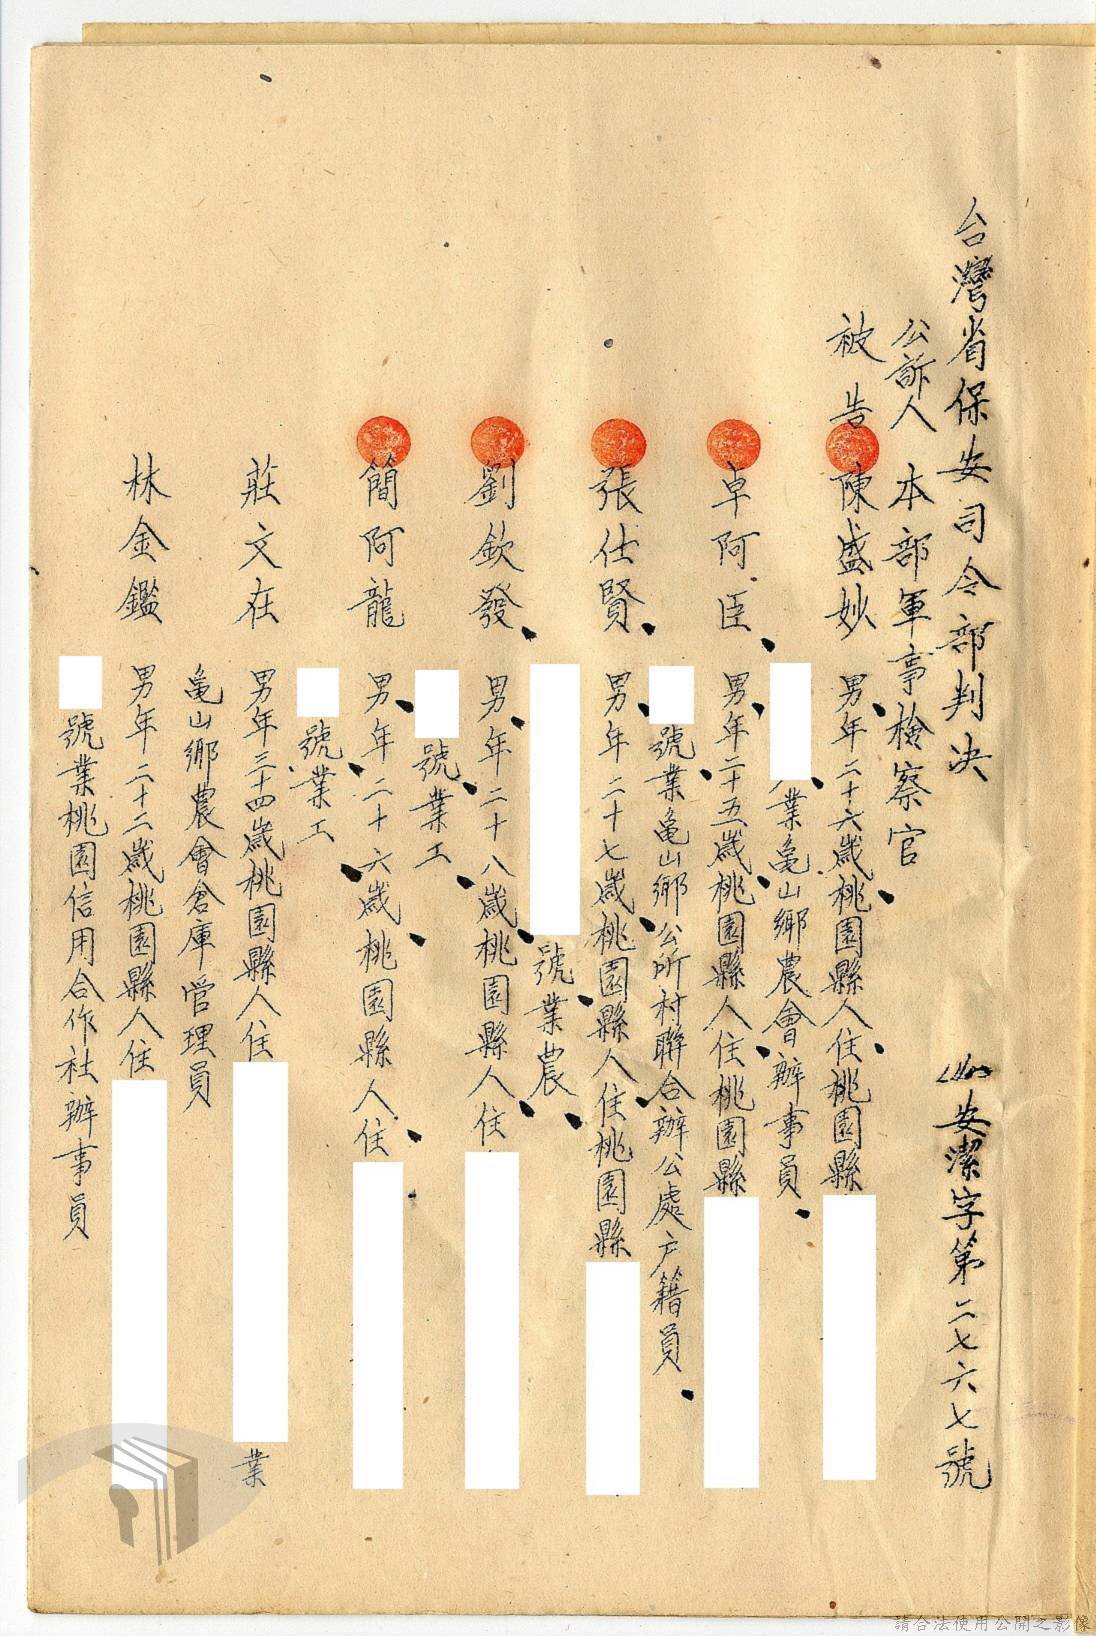 台灣省保安司令部判決
安潔字第二七六七號
公訴人 本部軍事檢察官
被告 陳盛妙 男年二十六歲桃園縣人住桃園縣
業龜山鄉農會辦事員
卓阿臣 男年二十五歲桃園縣人住桃園縣
號業龜山鄉公所村聯合辦公處户籍員
張仕賢 男年二十七歲桃園縣人住桃園縣
號業農
劉欽發 男年二十八歲桃園縣人住
號業工
簡阿龍 男年二十六歲桃園縣人住
號業工
莊文在 男年三十四歲桃園縣人住 業
龜山鄉農會倉庫管理員
林金鑑 男年二十二歲桃園縣人住
號業桃園信用合作社辦事員
請合法使用公開之影像